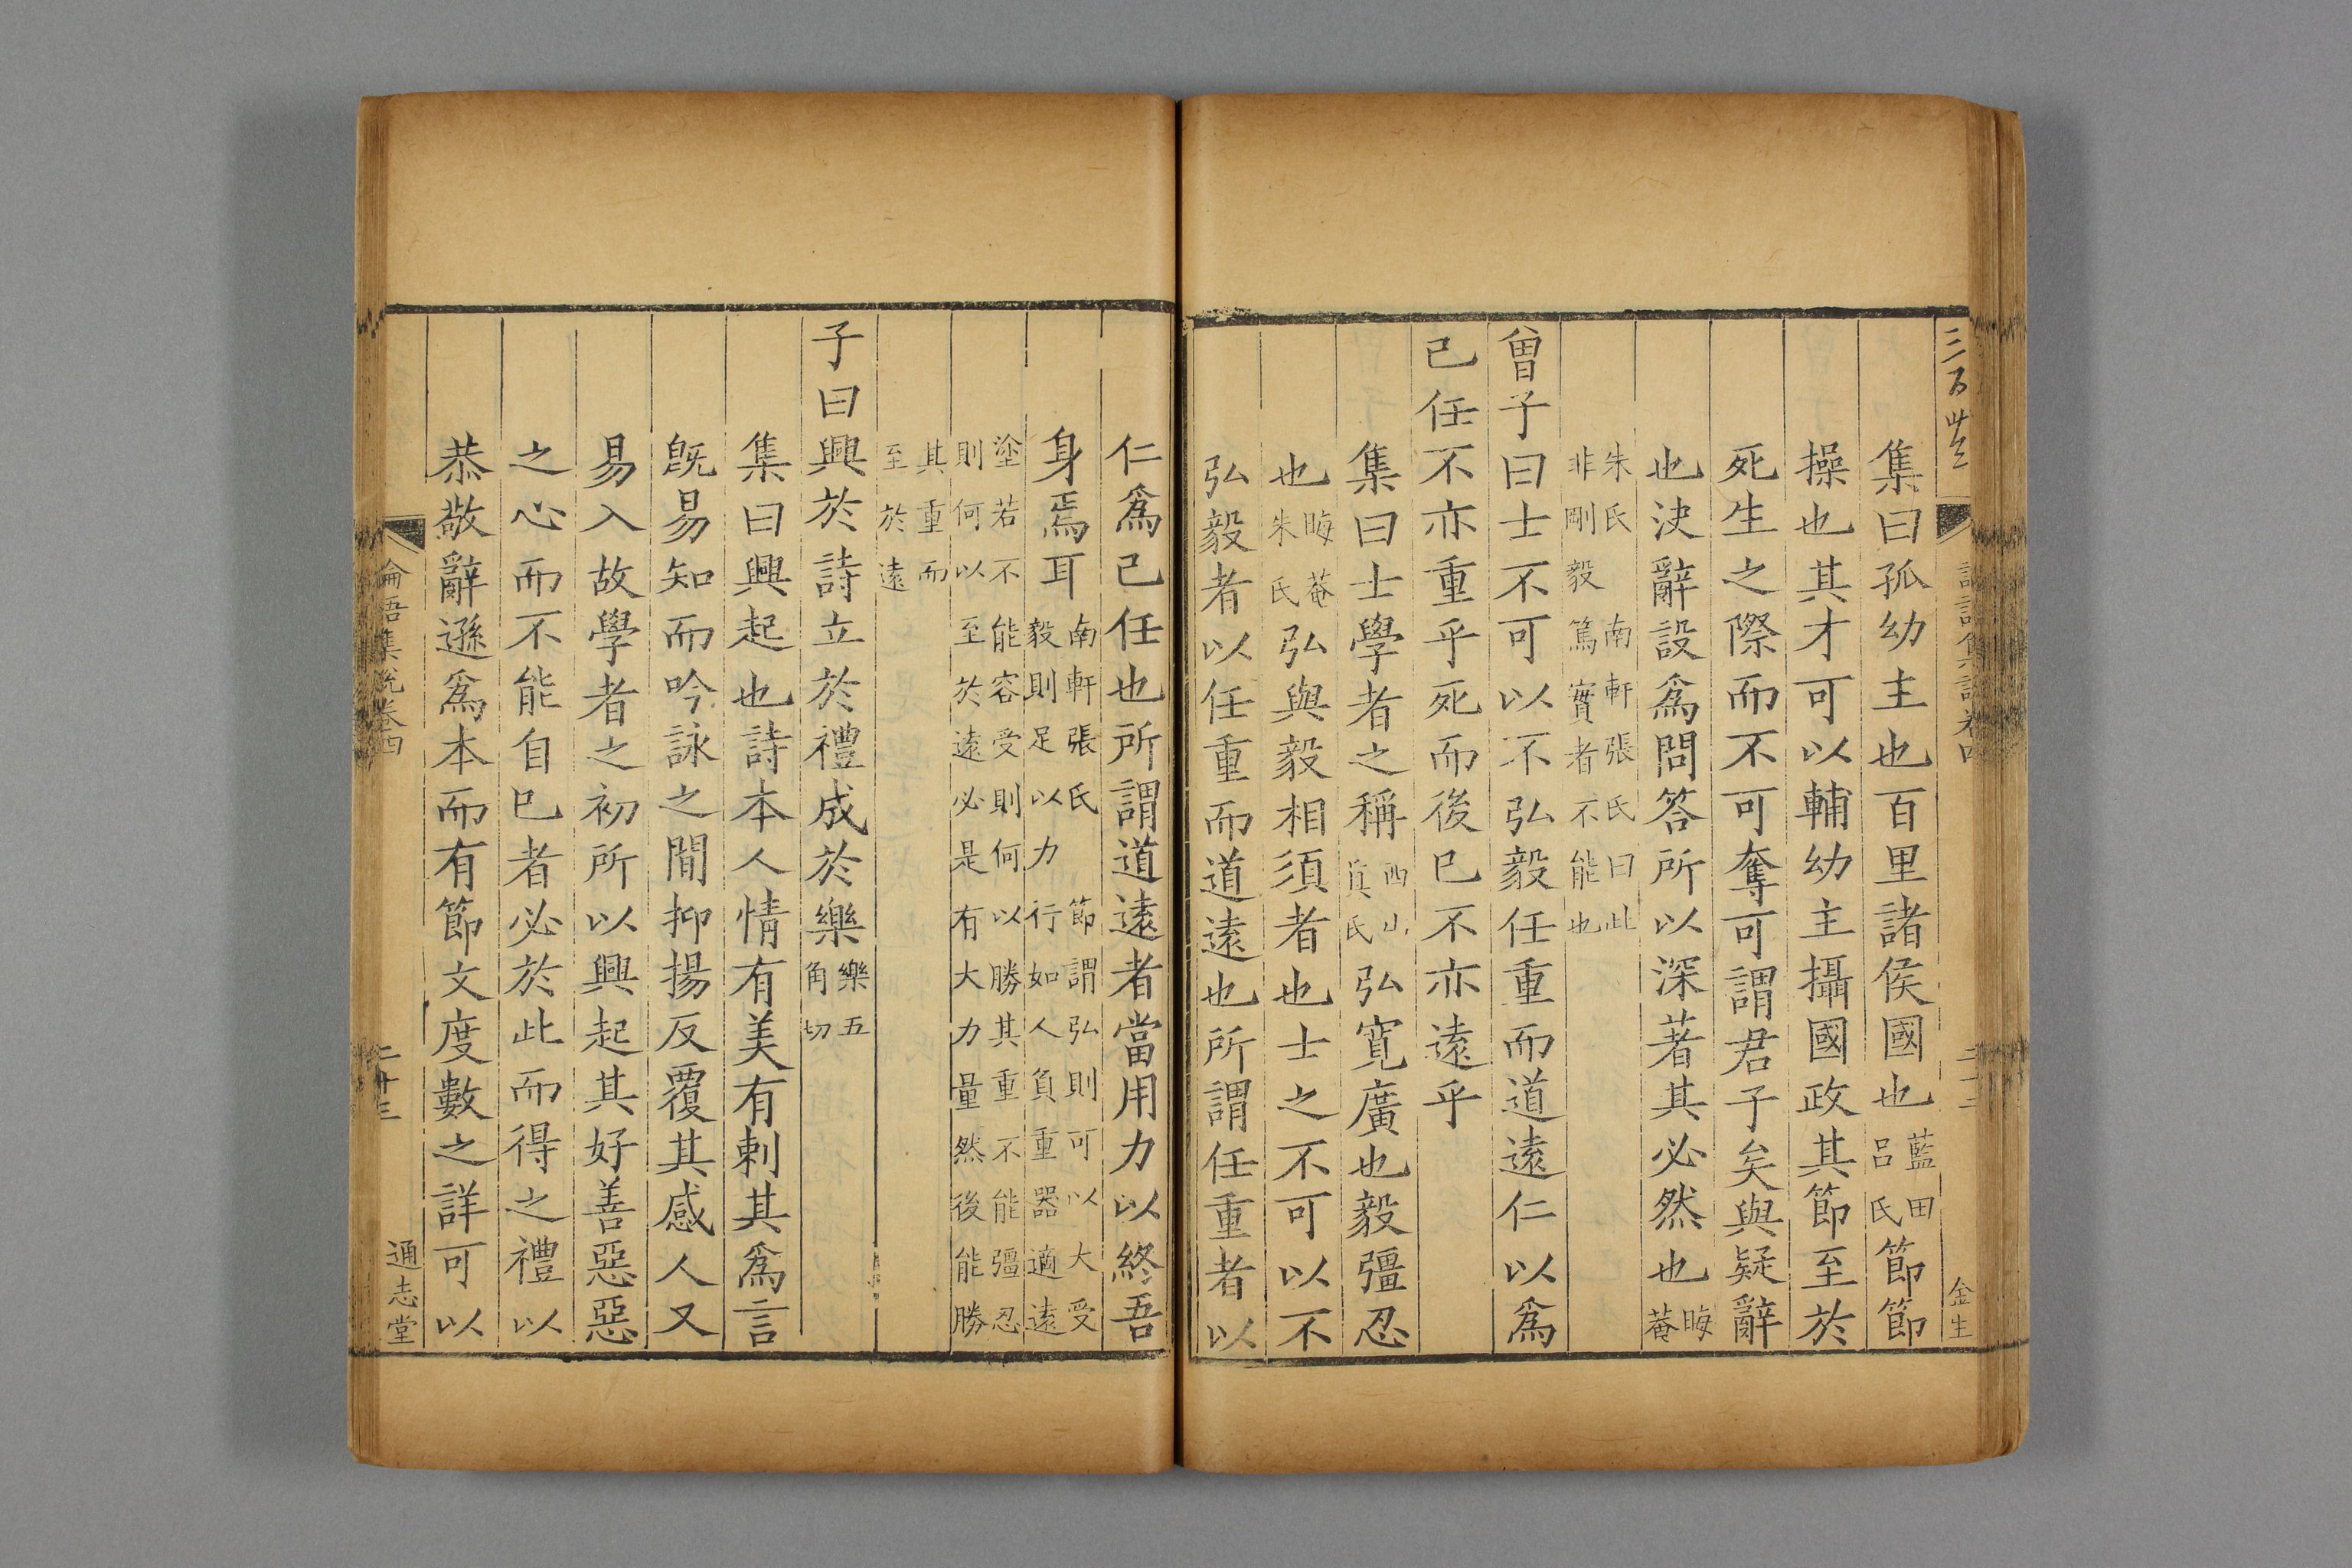 集曰孤幼主也百里諸侯國也藍田呂氏節節
操也其才可以輔幼主攝國政其節至於
死生之際而不可奪可謂君子矣與疑辭
也決辭設爲問答所以深著其必然也晦菴
朱氏南軒張氏曰此
非剛毅篤實者不能也
曾子曰士不可以不弘毅任重而道遠仁以爲
己任不亦重乎死而後已不亦遠乎
集曰士學者之稱西山眞氏弘寬廣也毅彊忍
也晦菴朱氏弘與毅相須者也士之不可以不
弘毅者以任重而道遠也所謂任重者以
金生
仁爲己任也所謂道遠者當用力以終吾
身焉耳南軒張氏節謂弘則可以大受
毅則足以力行如人負重器適遠
塗若不能容受則何以勝其重不能彊忍
則何以至於遠必是有大力量然後能勝
其重而
至於遠
子曰興於詩立於禮成於樂樂五角切
集曰興起也詩本人情有美有刺其爲言
旣易知而吟詠之間抑揚反覆其感人又
易入故學者之初所以興起其好善惡惡
之心而不能自已者必於此而得之禮以
恭敬辭遜爲本而有節文度數之詳可以
論語集說卷四
二十三
通志堂